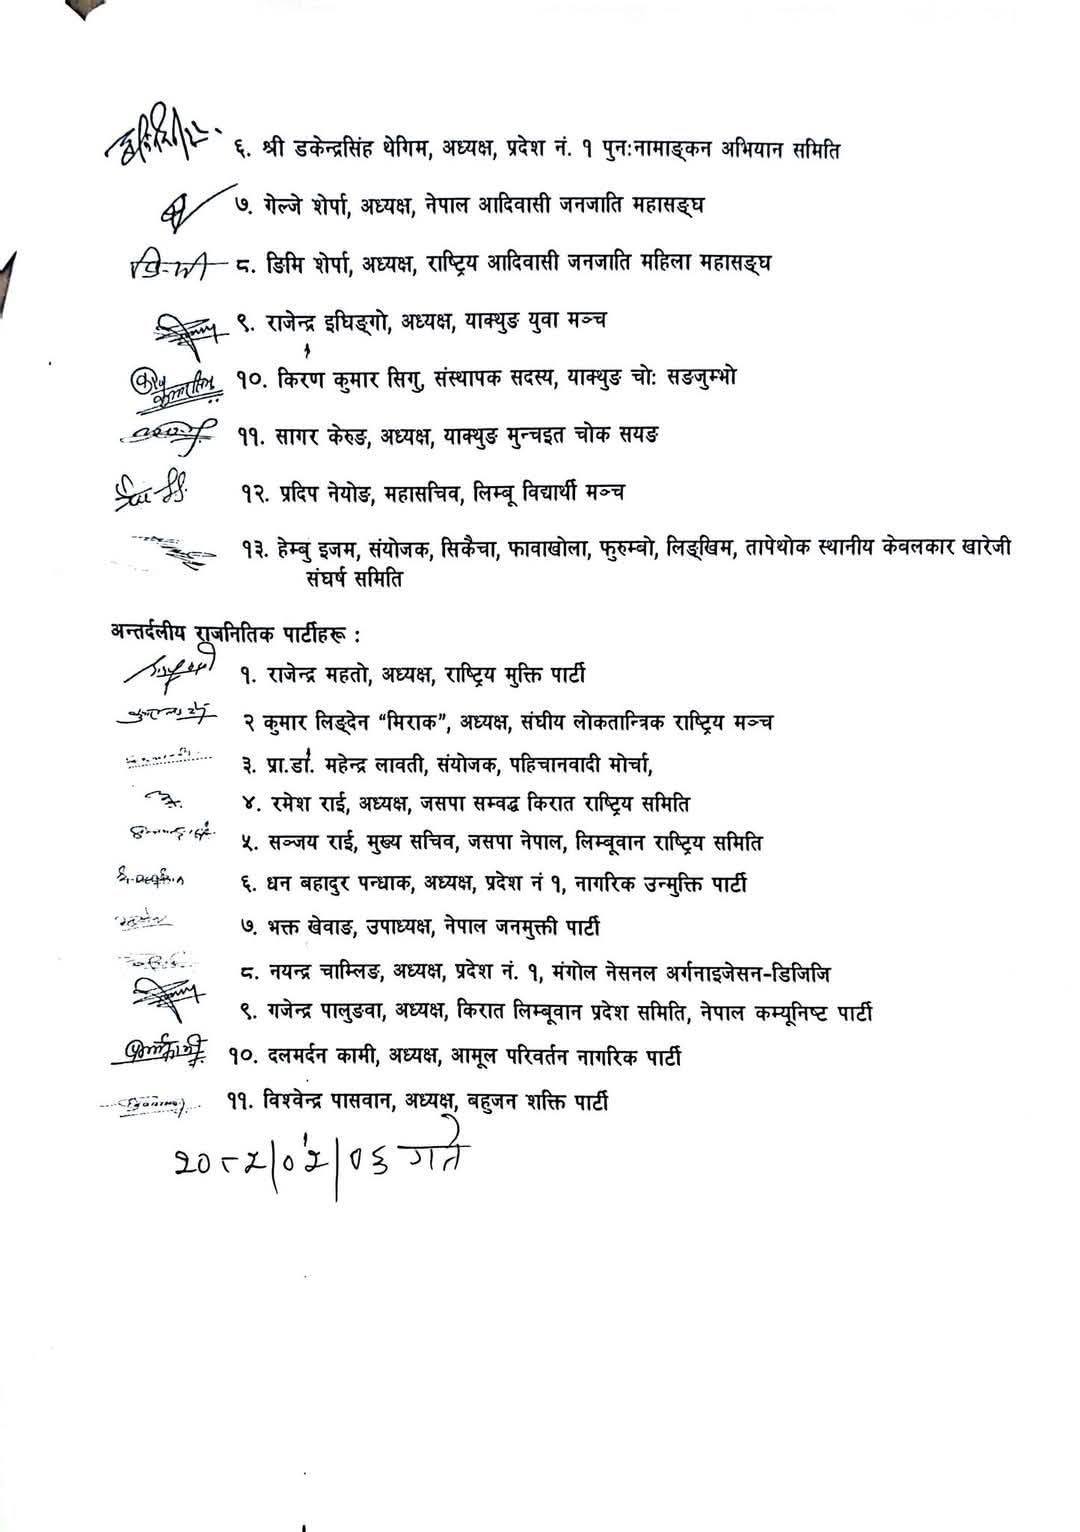 ६. श्री डकेन्द्रसिंह थेगिम, अध्यक्ष, प्रदेश नं. १ पुन:नामाङ्कन अभियान समिति
७. गेल्जे शेर्पा, अध्यक्ष, नेपाल आदिवासी जनजाति महासङ्घ
८. ङिमि शेर्पा, अध्यक्ष, राष्ट्रिय आदिवासी जनजाति महिला महासङ्घ
९. राजेन्द्र इघिङ्गो, अध्यक्ष, याक्थुङ युवा मञ्च
१०. किरण कुमार सिगु, संस्थापक सदस्य, याक्थुङ चो: सङजुम्भो
११. सागर केरुङ, अध्यक्ष, याक्थुङ मुन्चइत चोक सयङ
१२. प्रदिप नेयोङ, महासचिव, लिम्बू विद्यार्थी मञ्च
१३. हेम्बु इजम, संयोजक, सिकैचा, फावाखोला, फुरुम्बो, लिङ्खिम, तापेथोक स्थानीय केवलकार खारेजी
संघर्ष समिति
अन्तर्दलीय राजनितिक पार्टीहरू :
१. राजेन्द्र महतो, अध्यक्ष, राष्ट्रिय मुक्ति पार्टी
२ कुमार लिङ्देन “मिराक”, अध्यक्ष, संघीय लोकतान्त्रिक राष्ट्रिय मञ्च
३. प्रा.डा. महेन्द्र लावती, संयोजक, पहिचानवादी मोर्चा,
४. रमेश राई, अध्यक्ष, जसपा सम्वद्ध किरात राष्ट्रिय समिति
५. सञ्जय राई, मुख्य सचिव, जसपा नेपाल, लिम्बूवान राष्ट्रिय समिति
६. धन बहादुर पन्धाक, अध्यक्ष, प्रदेश नं १, नागरिक उन्मुक्ति पार्टी
७. भक्त खेवाङ, उपाध्यक्ष, नेपाल जनमुक्ती पार्टी
८. नयन्द्र चाम्लिङ, अध्यक्ष, प्रदेश नं. १, मंगोल नेसनल अर्गनाइजेसन-डिजिजि
९. गजेन्द्र पालुङवा, अध्यक्ष, किरात लिम्बूवान प्रदेश समिति, नेपाल कम्यूनिष्ट पार्टी
१०. दलमर्दन कामी, अध्यक्ष, आमूल परिवर्तन नागरिक पार्टी
११. विश्वेन्द्र पासवान, अध्यक्ष, बहुजन शक्ति पार्टी
२०८२/०२/०६ गते